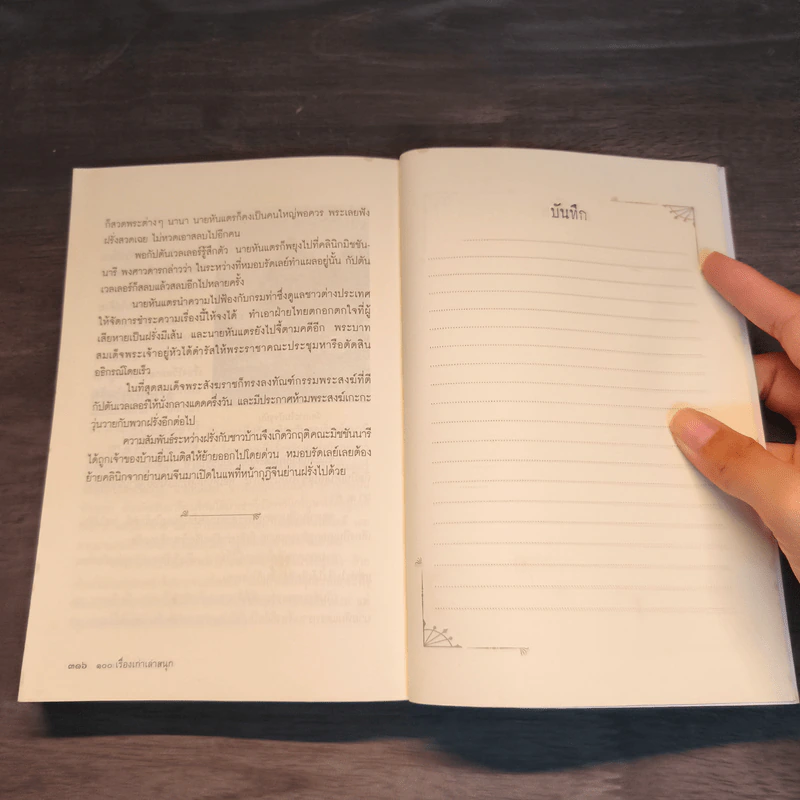 ก็สวดพระต่างๆ นานา นายหันแตรก็คงเป็นคนใหญ่พอควร พระเลยฟัง
ฝรั่งสวดเฉย ไม่หวดเอาสลบไปอีกคน
พอกัปตันเวลเลอร์รู้สึกตัว นายหันแตรก็พยุงไปที่คลินิกมิชชัน-
นารี พงศาวดารกล่าวว่า ในระหว่างที่หมอบรัดเลย์ทำแผลอยู่นั้น กัปตัน
เวลเลอร์ก็สลบแล้วสลบอีกไปหลายครั้ง
นายหันแตรนำความไปฟ้องกับกรมท่าซึ่งดูแลชาวต่างประเทศ
ให้จัดการชำระความเรื่องนี้ให้จงได้ ทำเอาฝ่ายไทยตกอกตกใจที่ผู้
เสียหายเป็นฝรั่งมีเส้น และนายหันแตรยังไปจี้ตามคดีอีก พระบาท
สมเด็จพระเจ้าอยู่หัวได้ดำรัสให้พระราชาคณะประชุมหารือตัดสิน
อธิกรณ์โดยเร็ว
ในที่สุดสมเด็จพระสังฆราชก็ทรงลงทัณฑ์กรรมพระสงฆ์ที่ตี
กัปตันเวลเลอร์ให้นั่งกลางแดดครึ่งวัน และมีประกาศห้ามพระสงฆ์เกะกะ
วุ่นวายกับพวกฝรั่งอีกต่อไป
ความสัมพันธ์ระหว่างฝรั่งกับชาวบ้านจึงเกิดวิกฤติคณะมิชชันนารี
ได้ถูกเจ้าของบ้านยื่นโนติสให้ย้ายออกไปโดยด่วน หมอบรัดเลย์เลยต้อง
ย้ายคลินิกจากย่านคนจีนมาเปิดในแพที่หน้ากุฎีจีนย่านฝรั่งไปด้วย
๓๑๖ ๑๐๐ เรื่องเก่าเล่าสนุก
บันทึก